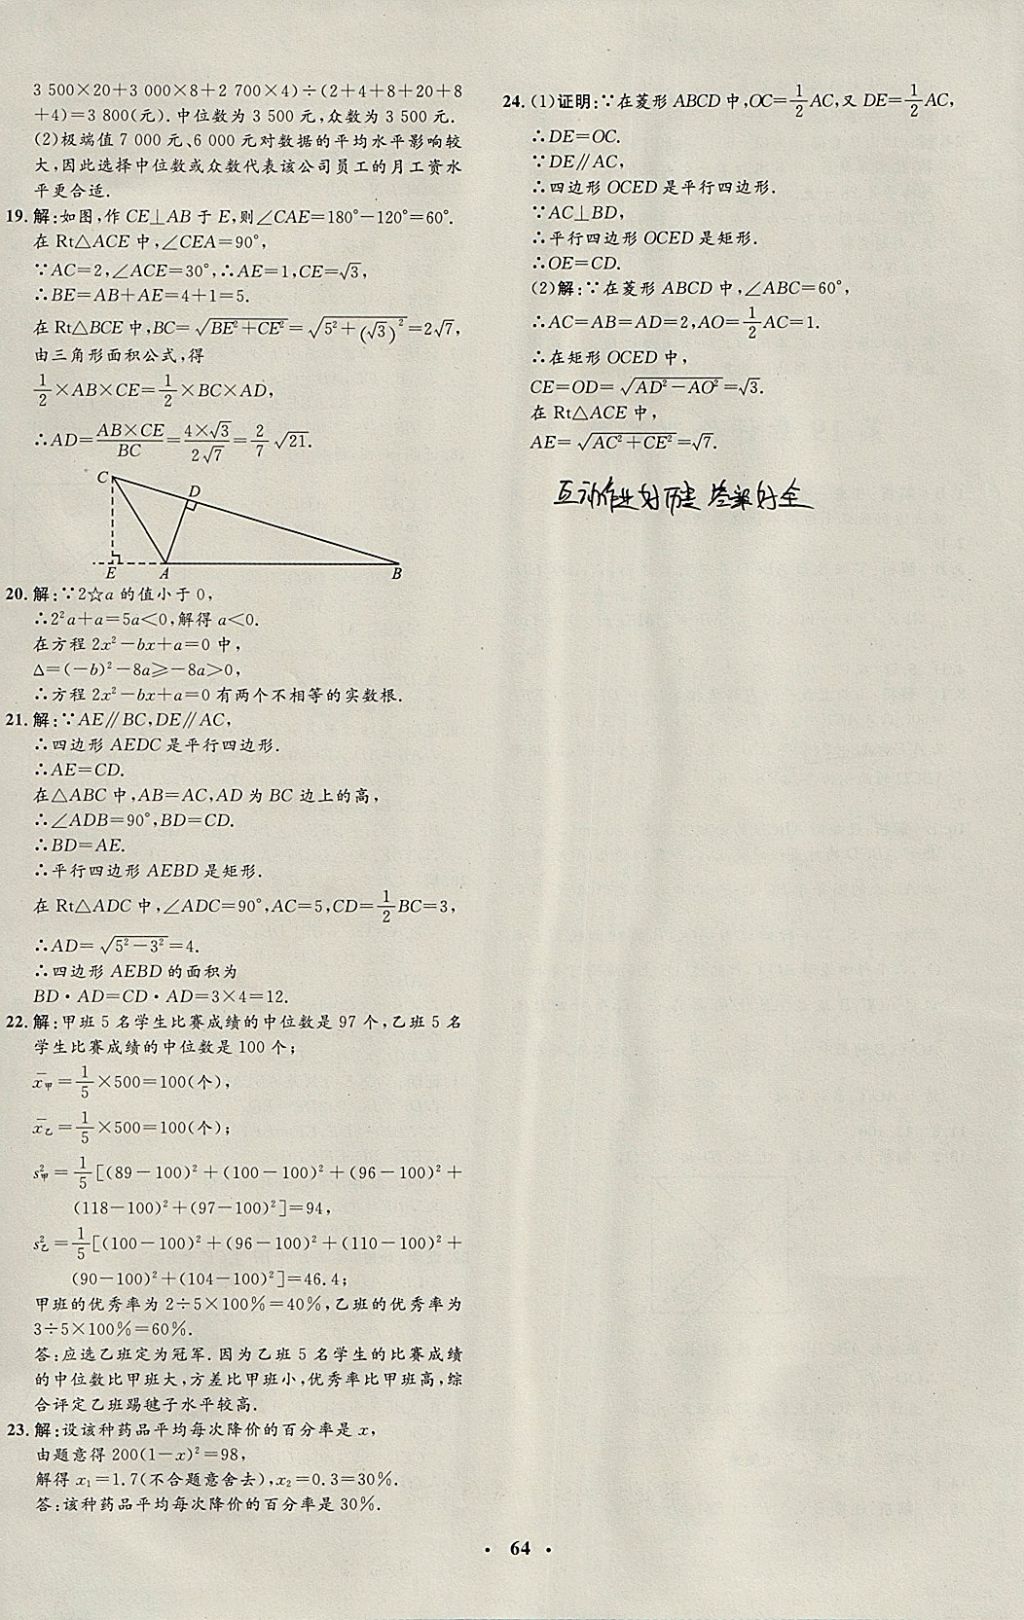 3 500×20+3 000×8+2 700×4)÷(2+4+8+20+8
+4)=3 800(元).中位数为 3 500元,众数为 3 500元.
(2)极端值 7 000元、6 000元对数据的平均水平影响较
大,因此选择中位数或众数代表该公司员工的月工资水
平更合适.
19.解:如图,作 CE⊥AB 于 E,则∠CAE=180°−120°=60°.
在 Rt△ACE 中,∠CEA=90°,
∵AC=2,∠ACE=30°,∴AE=1,CE=√3,
∴BE=AB+AE=4+1=5.
在 Rt△BCE 中,BC=√(BE²+CE²)=√(5²+(√3)²)=2√7,
由三角形面积公式,得
1/2×AB×CE=1/2×BC×AD,
∴AD=(AB×CE)/BC=(4×√3)/(2√7)=2/7 √21.
C
D
E A B
20.解:∵2☆a 的值小于 0,
∴2²a+a=5a<0,解得 a<0.
在方程 2x²−bx+a=0 中,
Δ=(−b)²−8a⩾−8a>0,
∴方程 2x²−bx+a=0 有两个不相等的实数根.
21.解:∵AE∥BC,DE∥AC,
∴四边形 AEDC 是平行四边形.
∴AE=CD.
在△ABC 中,AB=AC,AD 为 BC 边上的高,
∴∠ADB=90°,BD=CD.
∴BD=AE.
∴平行四边形 AEBD 是矩形.
在 Rt△ADC 中,∠ADC=90°,AC=5,CD=1/2BC=3,
∴AD=√(5²−3²)=4.
∴四边形 AEBD 的面积为
BD·AD=CD·AD=3×4=12.
22.解:甲班 5 名学生比赛成绩的中位数是 97 个,乙班 5 名
学生比赛成绩的中位数是 100 个;
x̄甲=1/5×500=100(个),
x̄乙=1/5×500=100(个);
s²甲=1/5[(89−100)²+(100−100)²+(96−100)²+
(118−100)²+(97−100)²]=94,
s²乙=1/5[(100−100)²+(96−100)²+(110−100)²+
(90−100)²+(104−100)²]=46.4;
甲班的优秀率为 2÷5×100%=40%,乙班的优秀率为
3÷5×100%=60%.
答:应选乙班定为冠军.因为乙班 5 名学生的比赛成绩
的中位数比甲班大,方差比甲班小,优秀率比甲班高,综
合评定乙班踢毽子水平较高.
23.解:设该种药品平均每次降价的百分率是 x,
由题意得 200(1−x)²=98,
解得 x₁=1.7(不合题意舍去),x₂=0.3=30%.
答:该种药品平均每次降价的百分率是 30%.
24.(1)证明:∵在菱形 ABCD 中,OC=1/2AC,又 DE=1/2AC,
∴DE=OC.
∵DE∥AC,
∴四边形 OCED 是平行四边形.
∵AC⊥BD,
∴平行四边形 OCED 是矩形.
∴OE=CD.
(2)解:∵在菱形 ABCD 中,∠ABC=60°,
∴AC=AB=AD=2,AO=1/2AC=1.
∴在矩形 OCED 中,
CE=OD=√(AD²−AO²)=√3.
在 Rt△ACE 中,
AE=√(AC²+CE²)=√7.
互动作业
· 64 ·